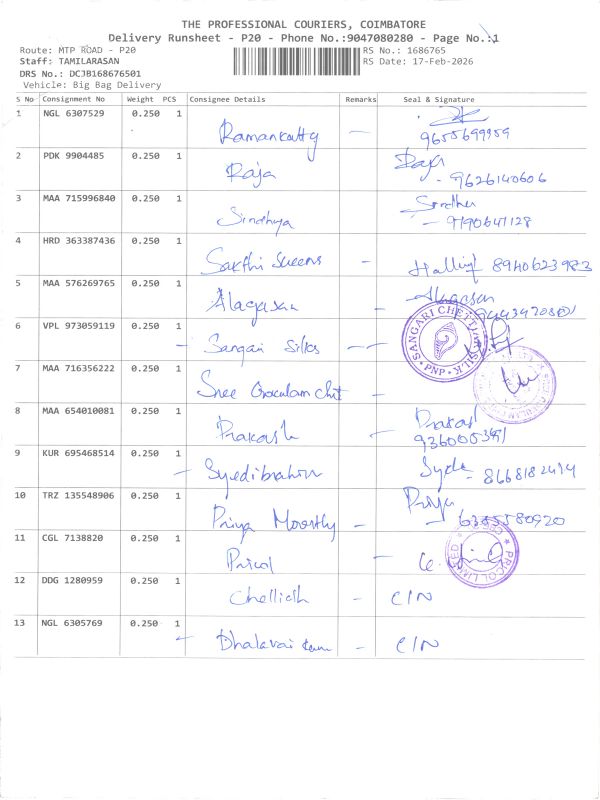 THE PROFESSIONAL COURIERS, COIMBATORE
Delivery Runsheet - P20 - Phone No.:9047080280 - Page No.:1
Route: MTP ROAD - P20 RS No.: 1686765
Staff: TAMILARASAN RS Date: 17-Feb-2026
DRS No.: DCJB168676501
Vehicle: Big Bag Delivery
S No Consignment No Weight PCS Consignee Details Remarks Seal & Signature
1 NGL 6307529 0.250 1 Ramankutty - 9655699959
2 PDK 9904485 0.250 1 Raja Raja - 9626140606
3 MAA 715996840 0.250 1 Sindhya Sindhu - 9190641128
4 HRD 363387436 0.250 1 Sakthi Sueens - 8940623983
5 MAA 576269765 0.250 1 Alagasan Alagasan
6 VPL 973059119 0.250 1 - Sangari Silks - SANGARI CHETTI SILK PNP
7 MAA 716356222 0.250 1 Sree Gokulam Chit -
8 MAA 654010081 0.250 1 Prakash - Prakash
9 KUR 695468514 0.250 1 - Syedibrahim Syed - 8668182414
10 TRZ 135548906 0.250 1 Priya Moorthy - Priya 6385580920
11 CGL 7138820 0.250 1 Pricol - PRICOL LIMITED
12 DDG 1280959 0.250 1 Chelliah - C/N
13 NGL 6305769 0.250 1 Dhalavai - C/N